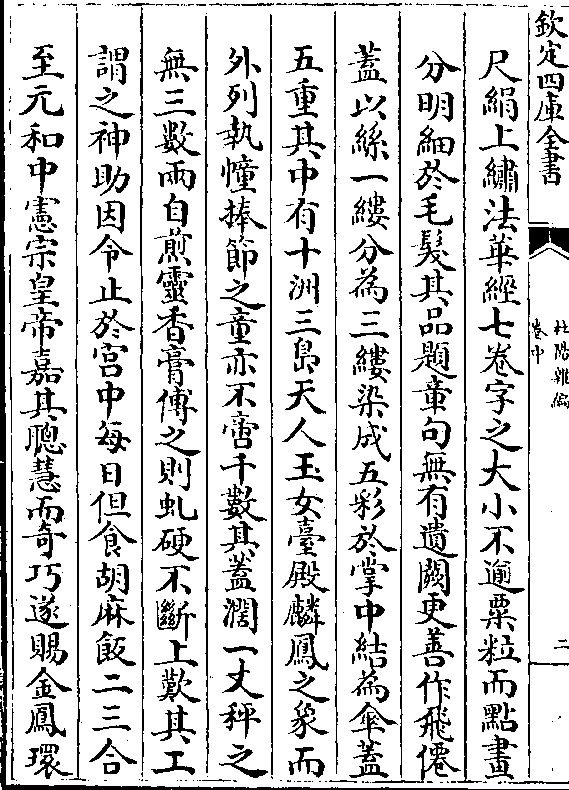 欽定四庫全書
杜陽雜編
卷中
二
尺絹上繡法華經七卷字之大小不逾粟粒而點畫
分明細於毛髮其品題章句無有遺闕更善作飛僊
蓋以絲一縷分為三縷染成五彩於掌中結為傘蓋
五重其中有十洲三島天人玉女臺殿麟鳳之象而
外列執幢捧節之童亦不啻千數其蓋濶一丈秤之
無三數兩自煎靈香膏傅之則虬硬不斷上歎其工
謂之神助因令止於宮中每日但食胡麻飯二三合
至元和中憲宗皇帝嘉其聰慧而奇巧遂賜金鳳環